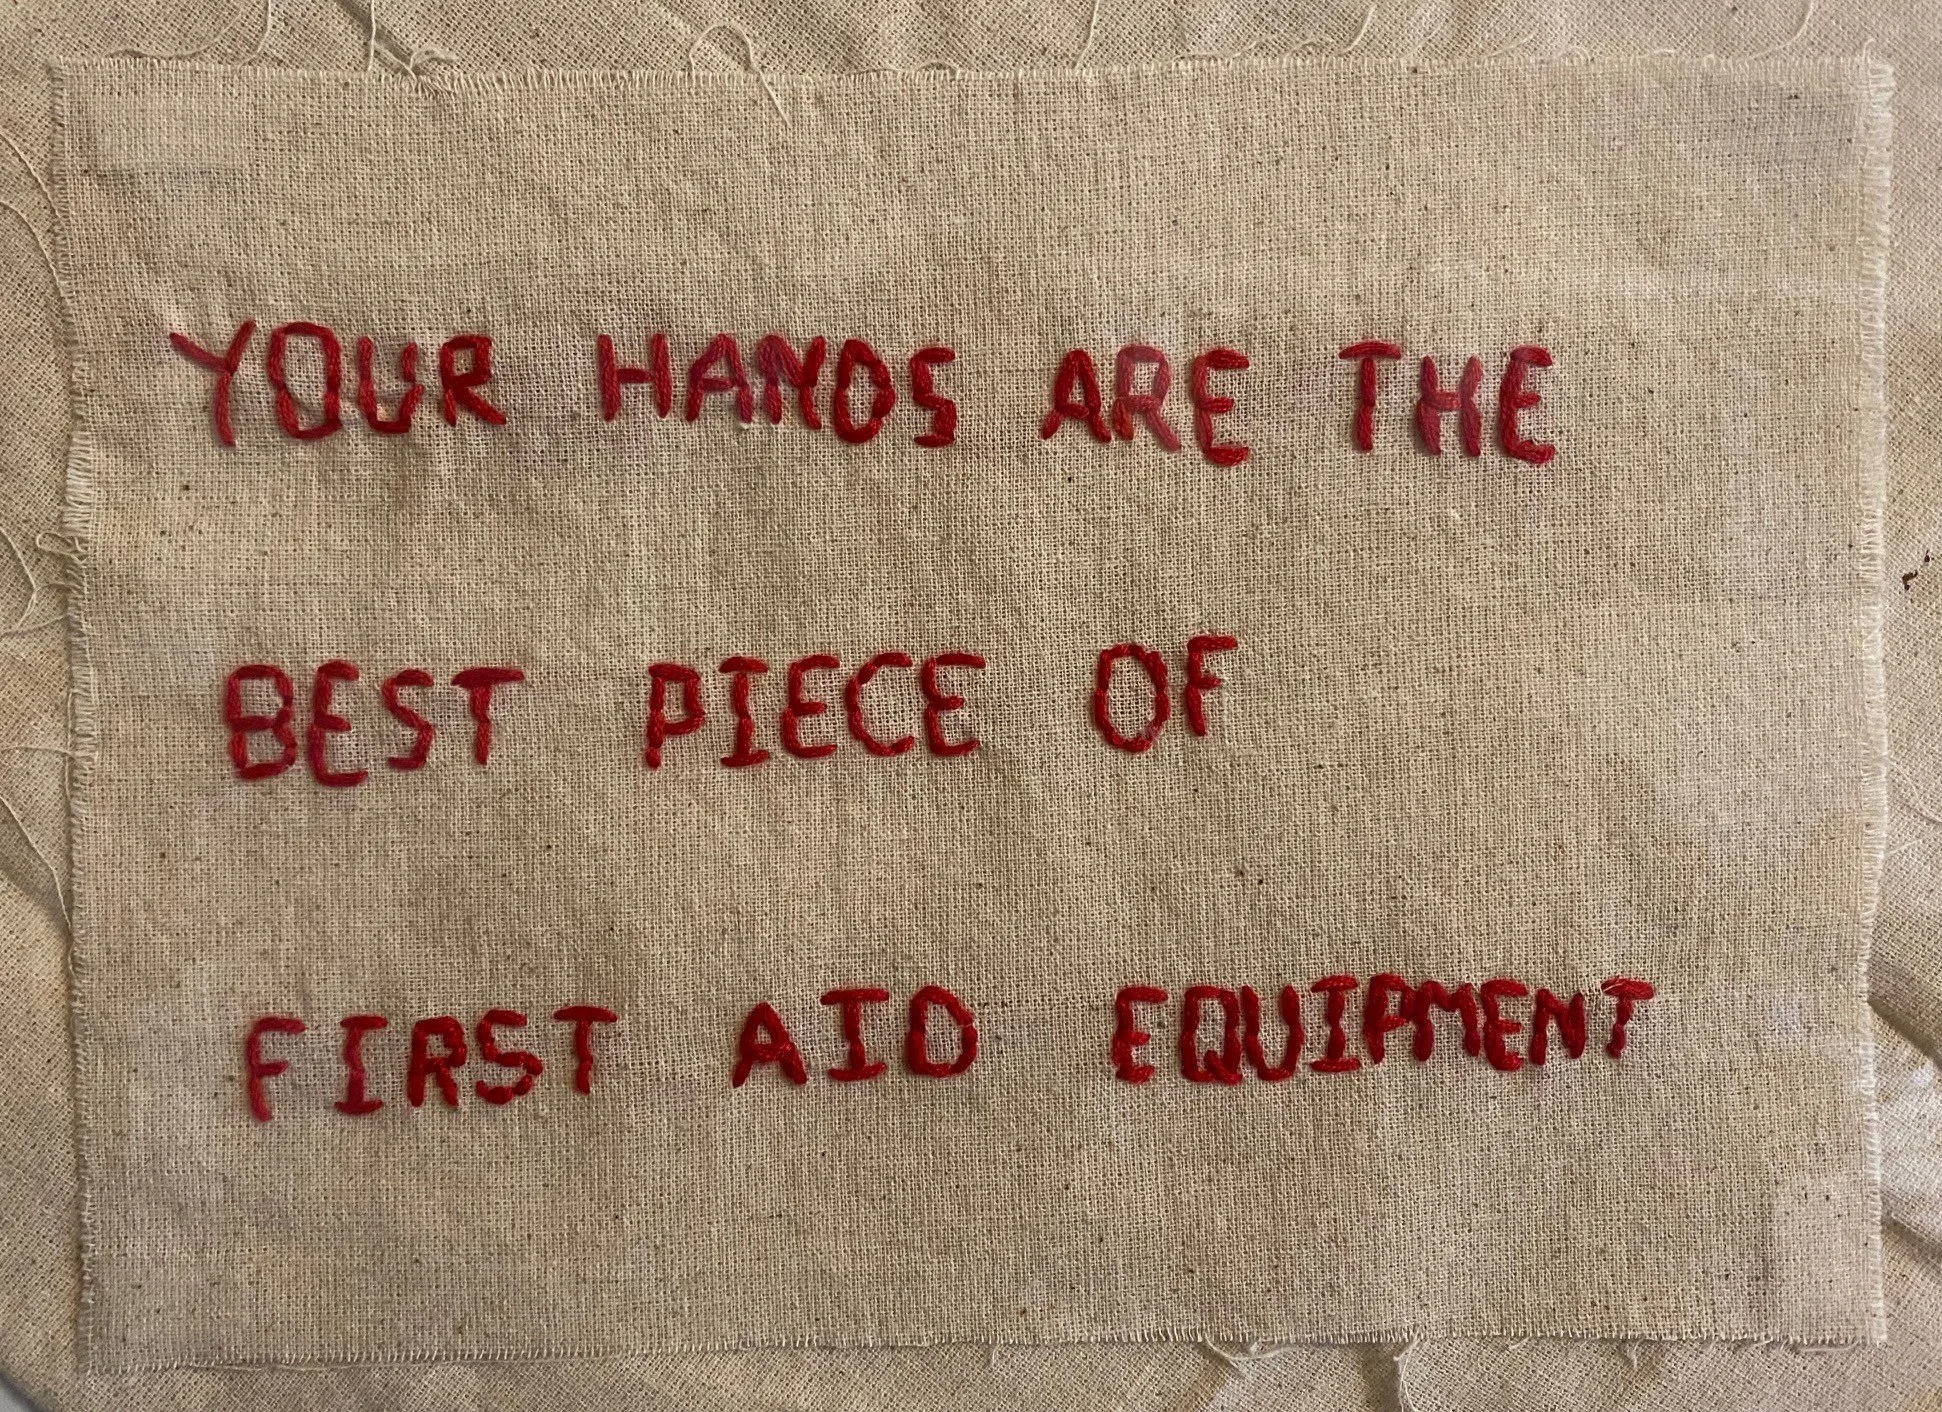 YOUR HANDS ARE THE
BEST PIECE OF
FIRST AID EQUIPMENT